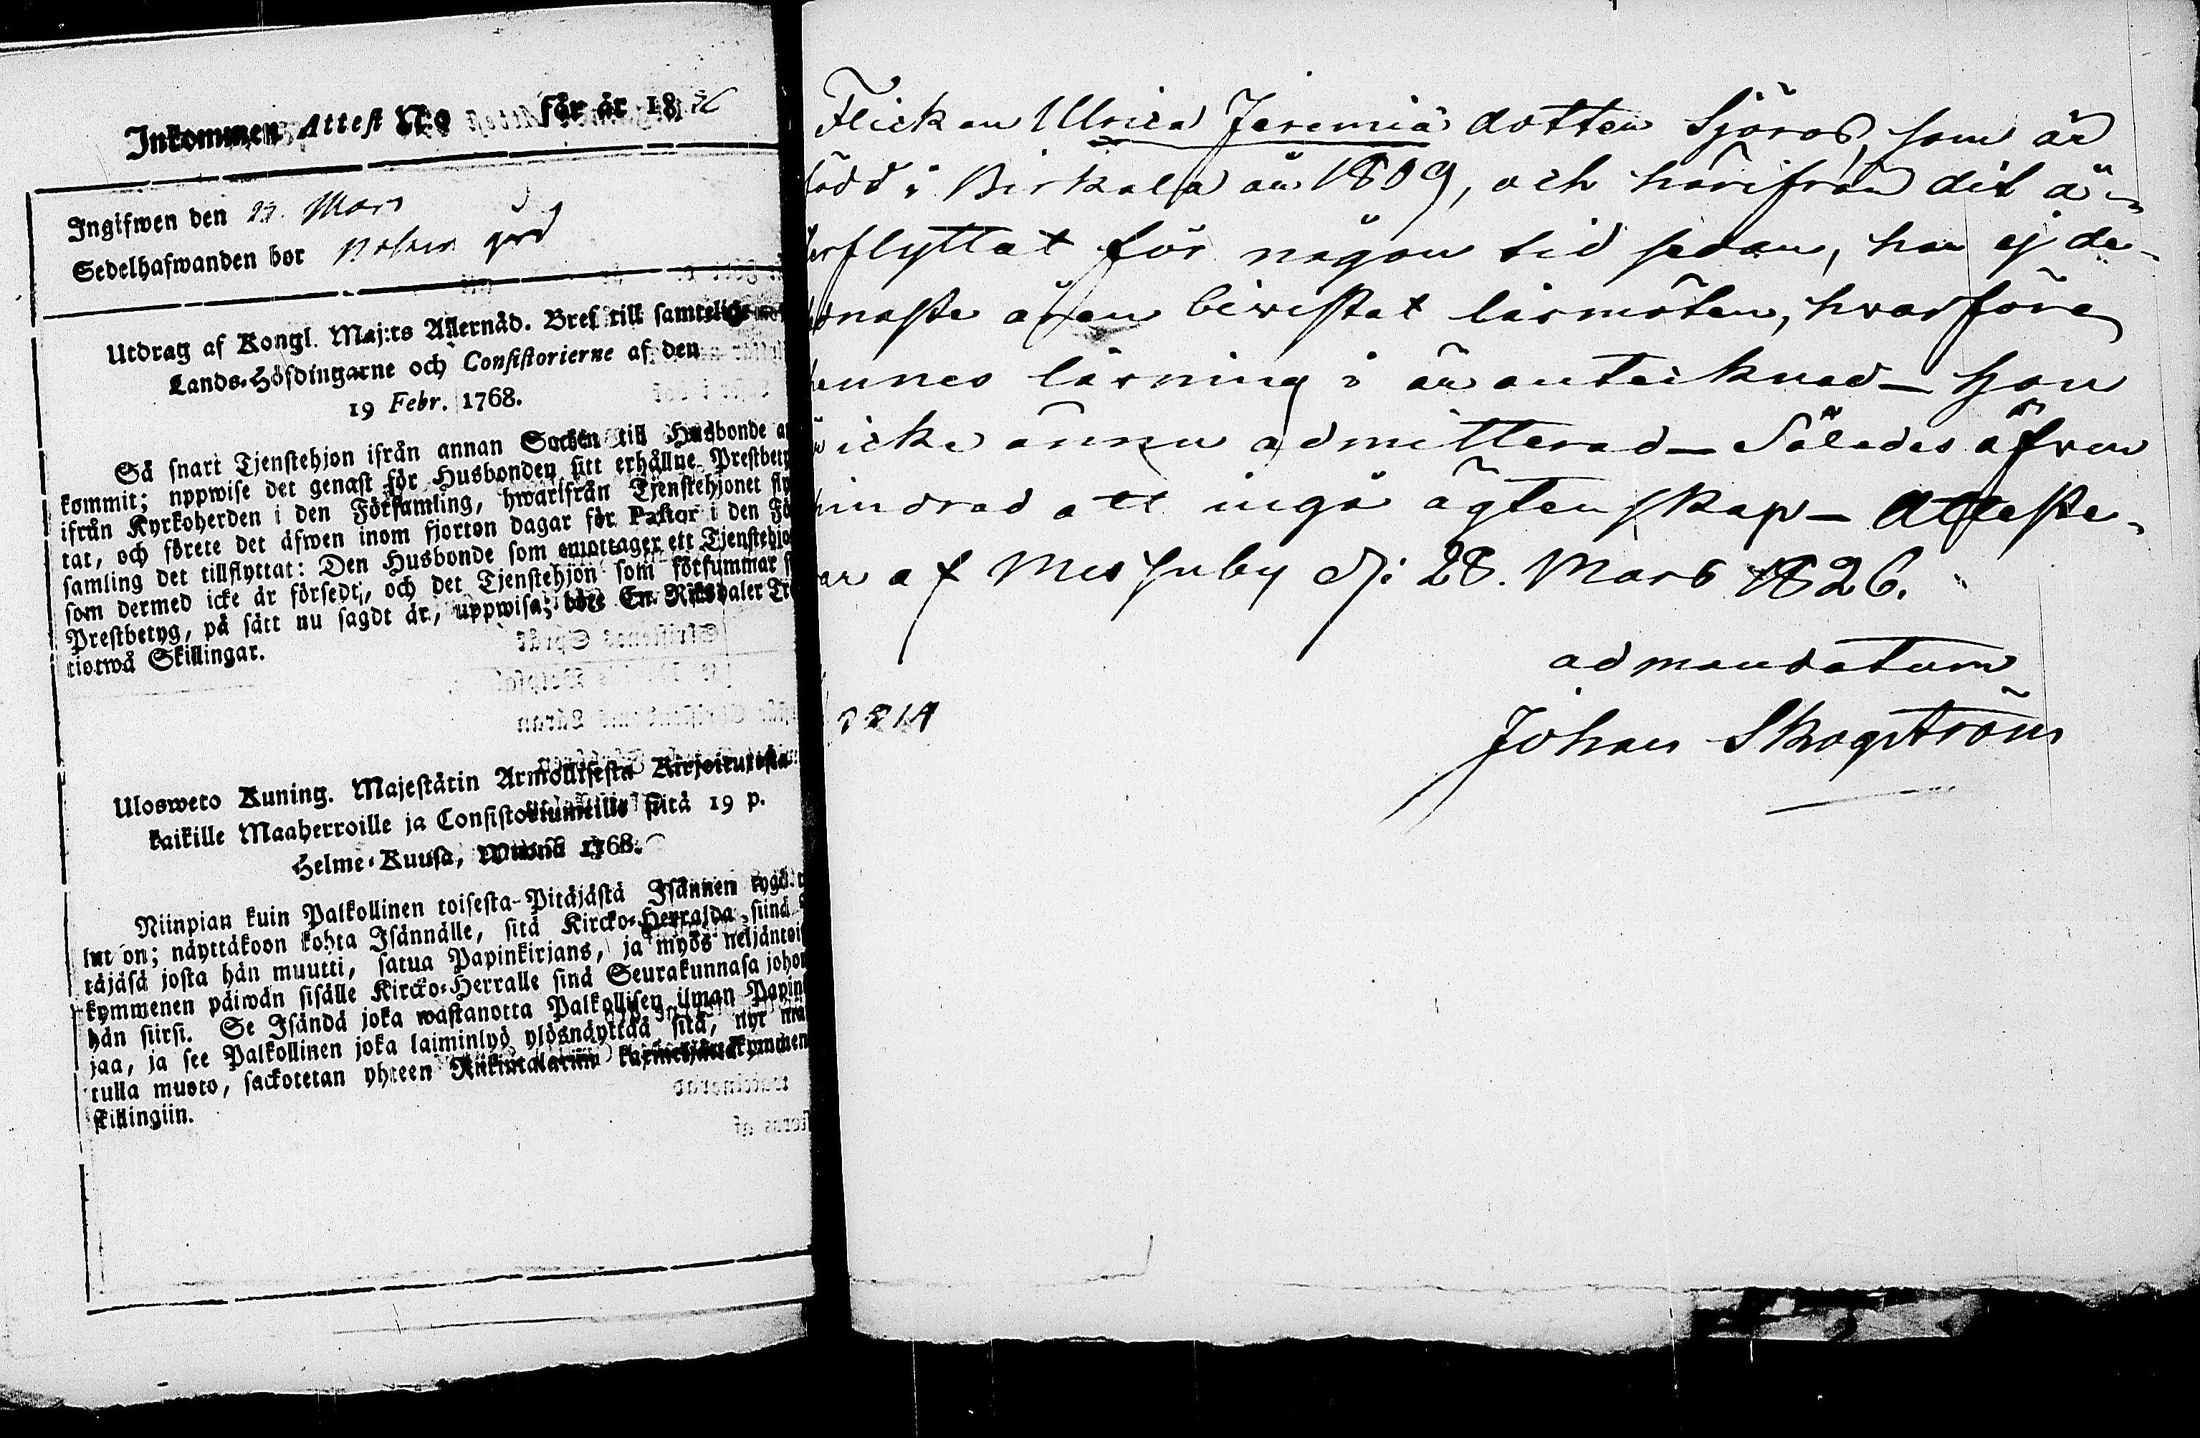 Inkommen Attest N:o för år 1826
Ingifwen den 29. Mars
Sedelhafwanden bor gård
Utdrag af Kongl. Maj:ts Allernåd. Bref till samtelige
Lands-Höfdingarne och Consistorierne af den
19 Febr. 1768.
Så snart Tjenstehjon ifrån annan Socken till Husbonde
kommit; uppwise det genast för Husbonden sitt erhållne Prestbet
ifrån Kyrkoherden i den Församling, hwarifrån Tjenstehjonet fly
tat, och förete det äfwen inom fjorton dagar för Pastor i den Fö
samling det tillflyttat: Den Husbonde som emottager ett Tjenstehjo
som dermed icke är försedt, och det Tjenstehjon som försummar s
Prestbetyg, på sätt nu sagdt är, uppwisa; böte En Riksdaler Tre
tiotwå Skillingar.
Ulosweto Kuning. Majestätin Armollisesta Kirjoituxesta
kaikille Maaherroille ja Consistoriumeille sitä 19 p.
Helme-Kuusa, Wuonä 1768.
Niinpian kuin Palkollinen toisesta-Pitäjästä Isännen tygö
lut on; näyttäkoon kohta Isännälle, sitä Kircko-Herralda siinä
täjäsä josta hän muutti, satua Papinkirjans, ja myös neljäntoi
kymmenen päiwän sisälle Kircko-Herralle sinä Seurakunnasa johon
hän siirsi. Se Isändä joka wastanotta Palkollisen ilman Papin
jaa, ja see Palkollinen joka laiminlyö ylösnäyttää sitä, nyt
tulla muoto, sackotetan yhteen Riikintalariin
skillingiin.
Flickan Ulrica Jeremiä dotter Sjöros, som är
född i Birkala år 1809, och härifrån dit å-
erflyttat för någon tid sedan, har ej de
åren bivistat läsmöten, hvarföre
hennes läsning ej är antecknad – hon
icke ännu admitterad – Således äfven
hindrad att ingå ägtenskap – Atteste-
rar af Messuby d: 28. Mars 1826.
ad mandatum
Johan Skogström